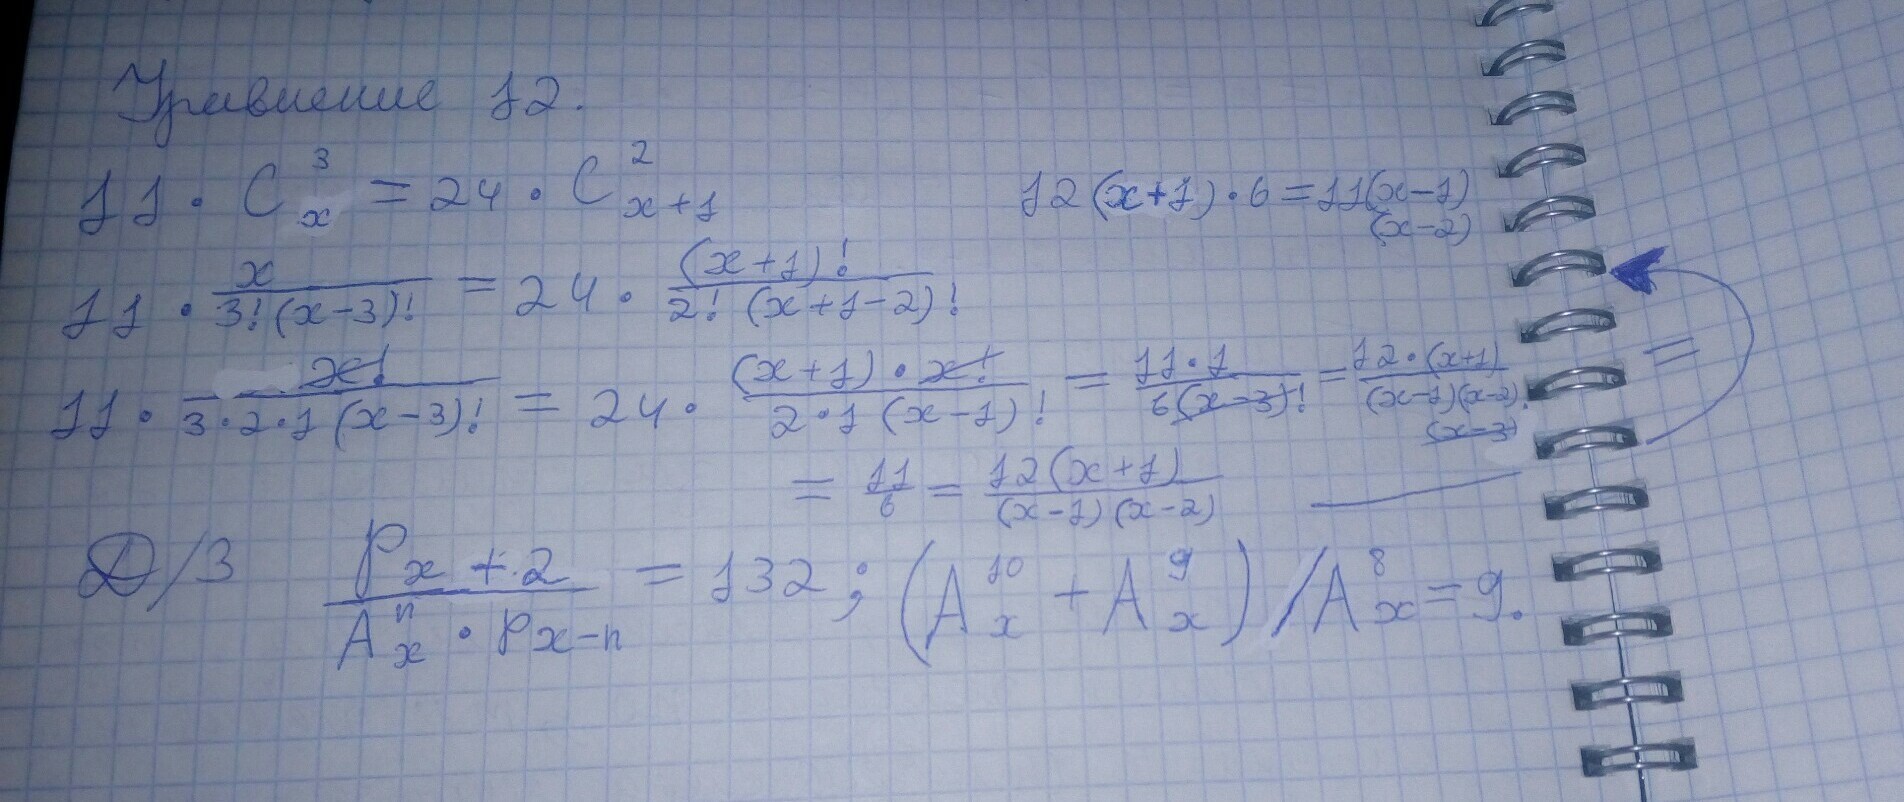 Уравнение 12.
11 · C_x^3 = 24 · C_{x+1}^2
12(x+1)·6 = 11(x-1)
(x-2)
11 · \frac{x}{3!(x-3)!} = 24 · \frac{(x+1)!}{2!(x+1-2)!}
11 · \frac{x!}{3·2·1(x-3)!} = 24 · \frac{(x+1)·x!}{2·1(x-1)!} = \frac{11·1}{6(x-3)!} = \frac{12·(x+1)}{(x-1)(x-2)·(x-3)} =
= \frac{11}{6} = \frac{12(x+1)}{(x-1)(x-2)}
Д/З \frac{P_{x+2}}{A_x^n · P_{x-n}} = 132; (A_x^{10} + A_x^9) / A_x^8 = 9.